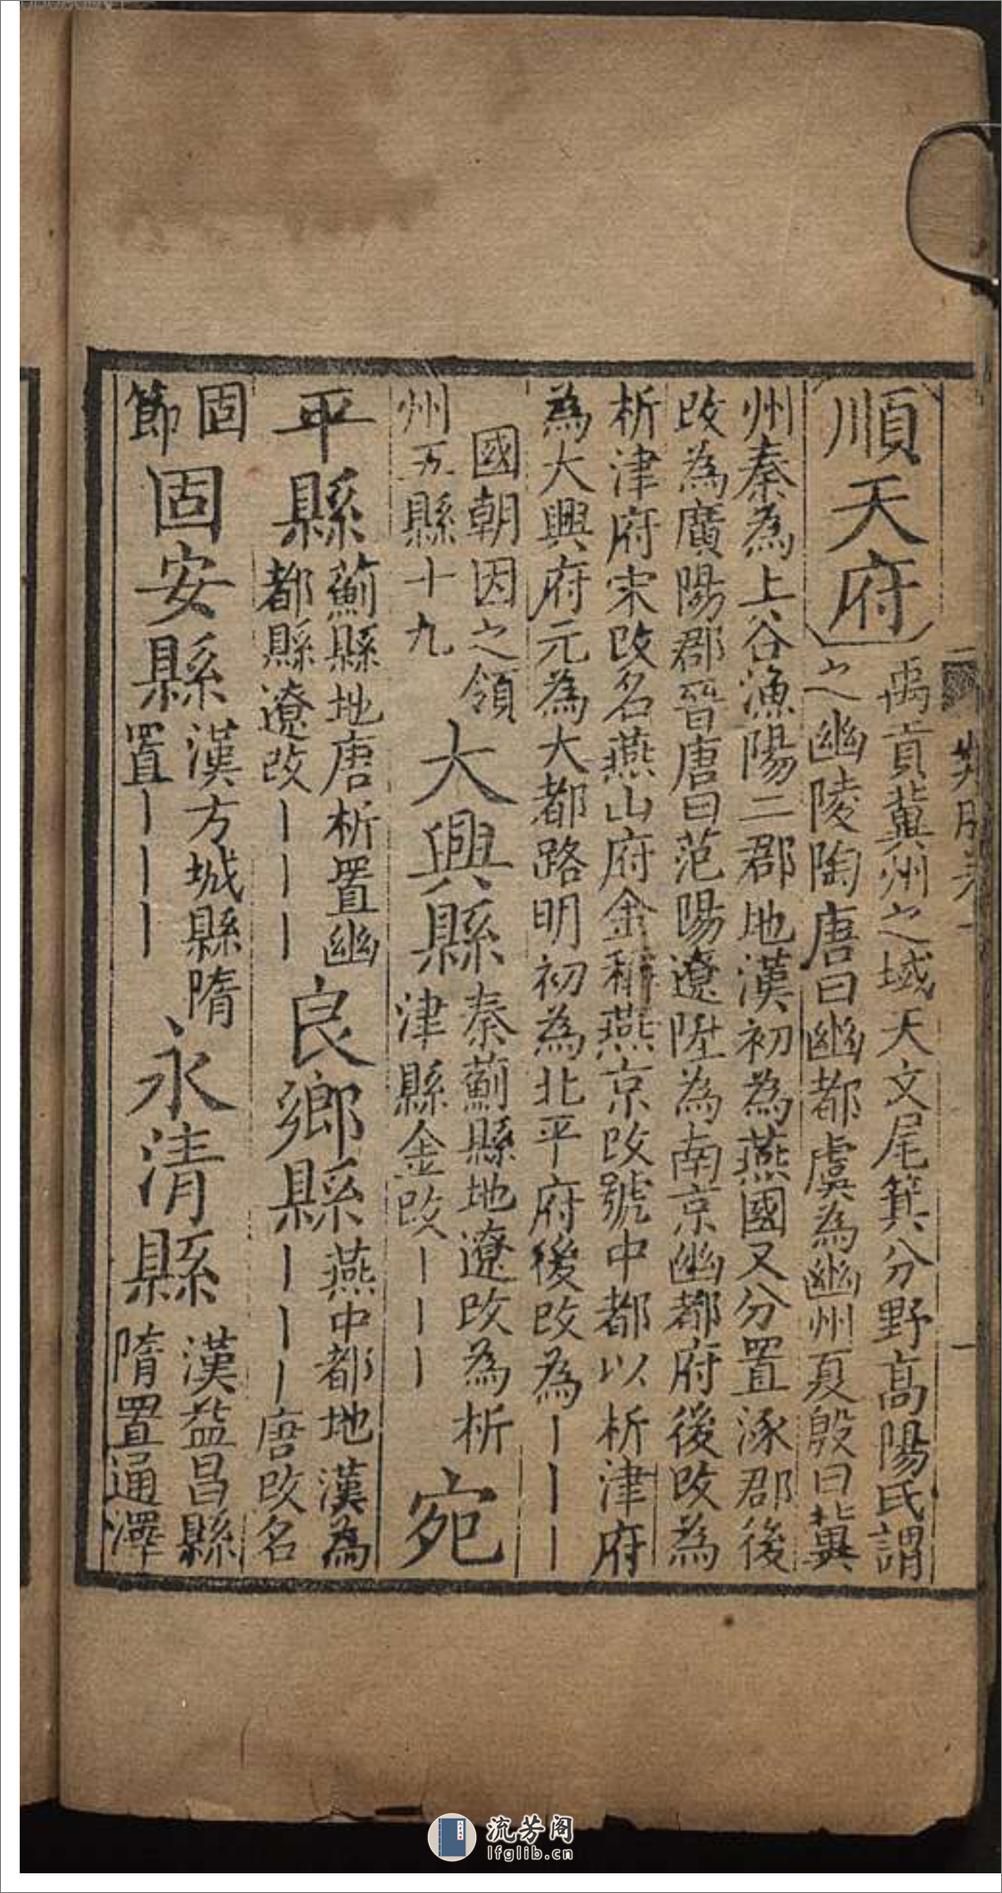 順天府
禹貢冀州之域天文尾箕分野高陽氏謂
之幽陵陶唐曰幽都虞為幽州夏殷曰冀
州秦為上谷漁陽二郡地漢初為燕國又分置涿郡後
改為廣陽郡晉唐曰范陽遼陞為南京幽都府後改為
析津府宋改名燕山府金稱燕京改號中都以析津府
為大興府元為大都路明初為北平府後改為｜｜｜
國朝因之領
州五縣十九
大興縣
秦薊縣地遼改為析
津縣金改｜｜｜
宛
平縣
薊縣地唐析置幽
都縣遼改｜｜｜
良鄉縣
燕中都地漢為
｜｜｜唐改名
固
節
固安縣
漢方城縣隋
置｜｜｜
永清縣
漢益昌縣
隋置通澤
一
流芳阁
lfglib.cn